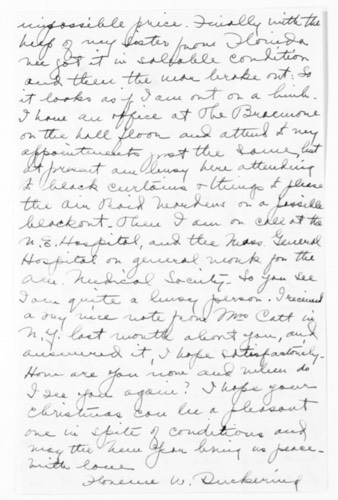 impossible price. Finally with the
help of my sister from Florida
we got it in salable condition
and then the war broke out. So
it looks as if I am out on a limb.
I have an office at The Braemore
on the hall floor and attend to my
appointments just the same, but
at present am busy here attending
to black curtains & things to please
the Air Raid Wardens on a possible
blackout. Then I am on call at the
N.E. Hospital, and the Mass. General
Hospital on general work for the
Am. Medical Society. So you see
I am quite a busy person. I received
a very nice note from Mrs Catt in
N.Y. last month about you, and
answered it, I hope satisfactorily.
How are you now and when do
I see you again? I hope your
Christmas can be a pleasant
one in spite of conditions and
may the New Year bring us peace.
With love
Florence W. Duckering